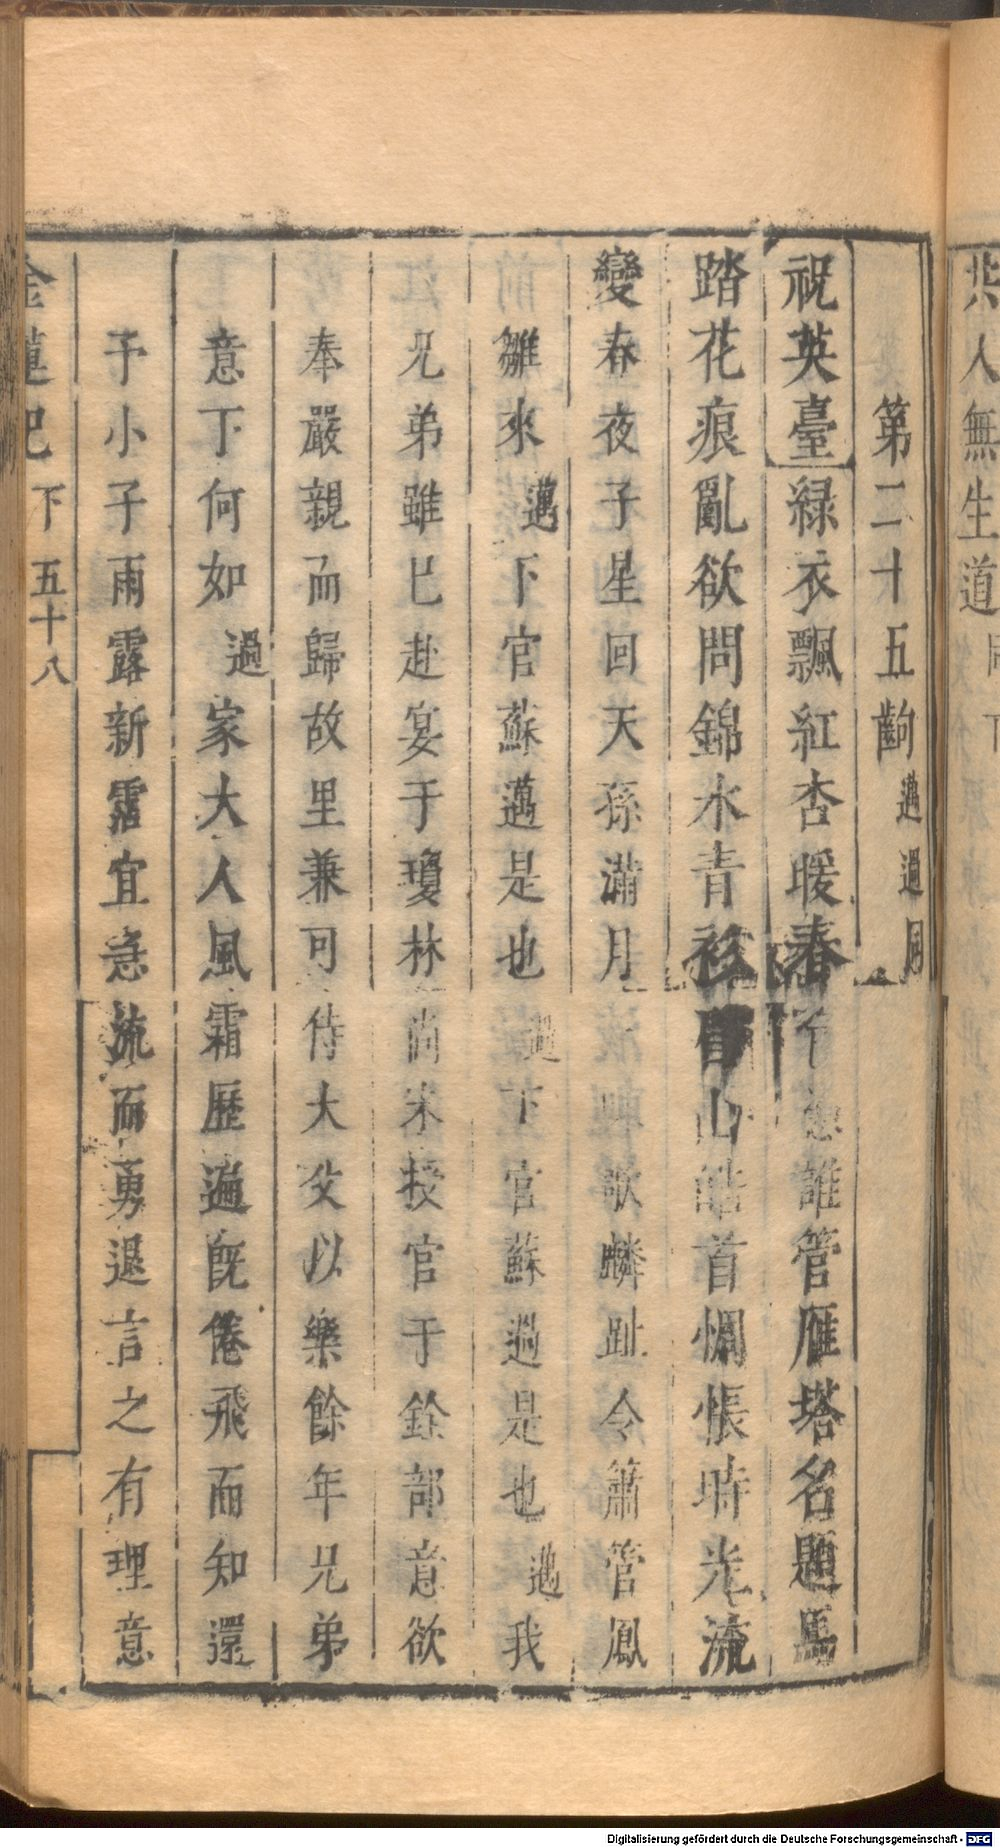 共人無生道
第二十五齣 邁過同
祝英臺 緑衣飄紅杏暖春 誰管雁塔名題馬
踏花痕亂欲問錦水青衫 山皓首惆悵時光流
變春夜子星回天孫滿月 歌麟趾令簫管鳳
雛來 邁 下官蘇邁是也 過 下官蘇過是也 邁 我
兄弟雖已赴宴于瓊林尚未授官于銓部意欲
奉嚴親而歸故里兼可侍大父以樂餘年兄弟
意下何如 過 家大人風霜歷遍旣倦飛而知還
予小子雨露新霑宜急流而勇退言之有理意
金蓮記 下 五十八
Digitalisierung gefördert durch die Deutsche Forschungsgemeinschaft - DFG